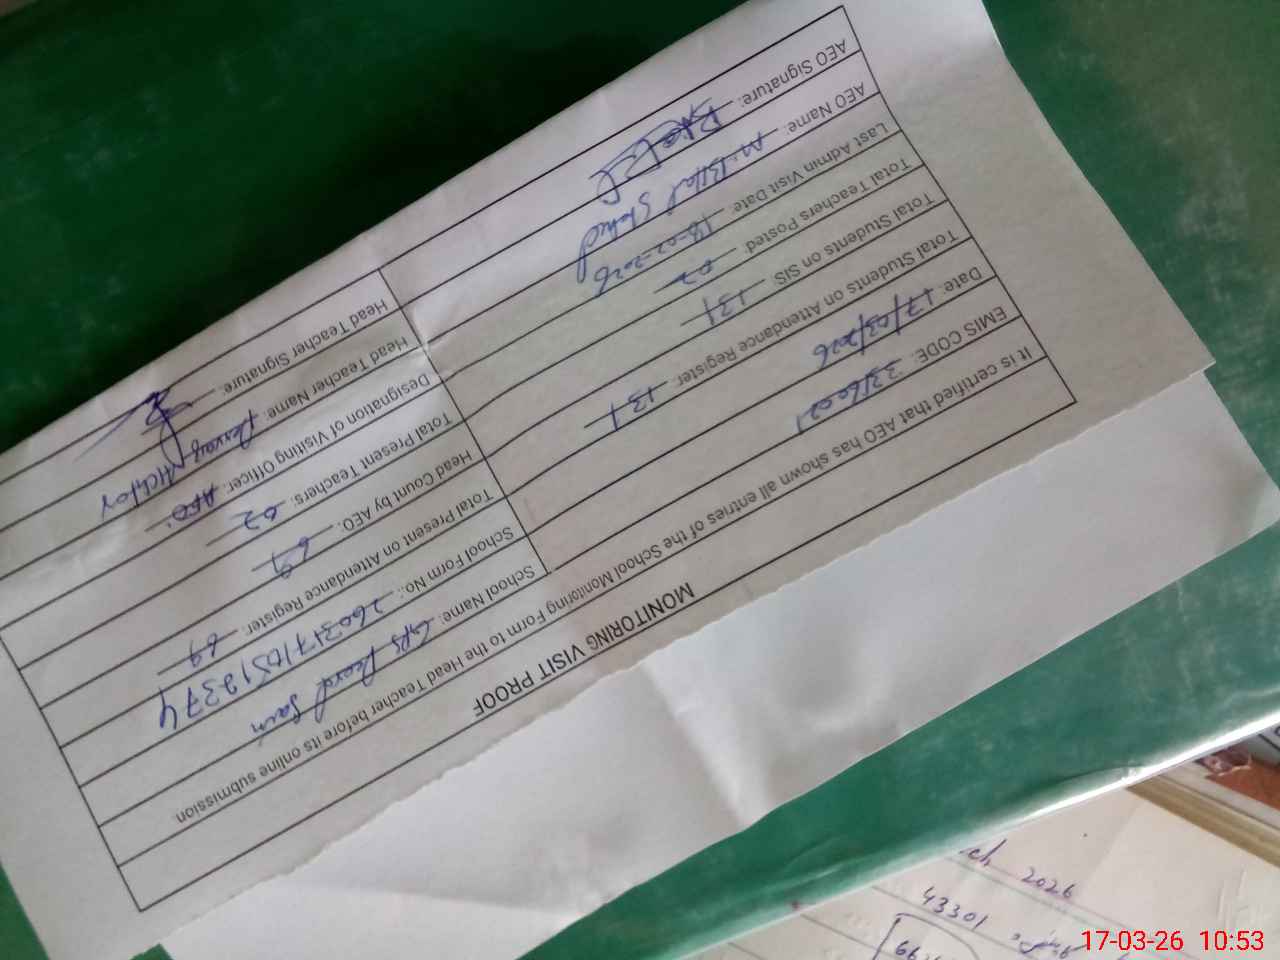 MONITORING VISIT PROOF
It is certified that AEO has shown all entries of the School Monitoring Form to the Head Teacher before its online submission.
EMIS CODE:
School Name: GPS
Date: 17/03/2026
School Form No.:
Total Students on Attendance Register: 131
Total Present on Attendance Register: 69
Total Students on SIS: 131
Head Count by AEO: 69
Total Teachers Posted: 02
Total Present Teachers: 02
Last Admin Visit Date: 18-02-2026
Designation of Visiting Officer: AEO
AEO Name: M. Bilal
Head Teacher Name: Akhtar
AEO Signature:
Head Teacher Signature:
ch 2026
43301
17-03-26 10:53